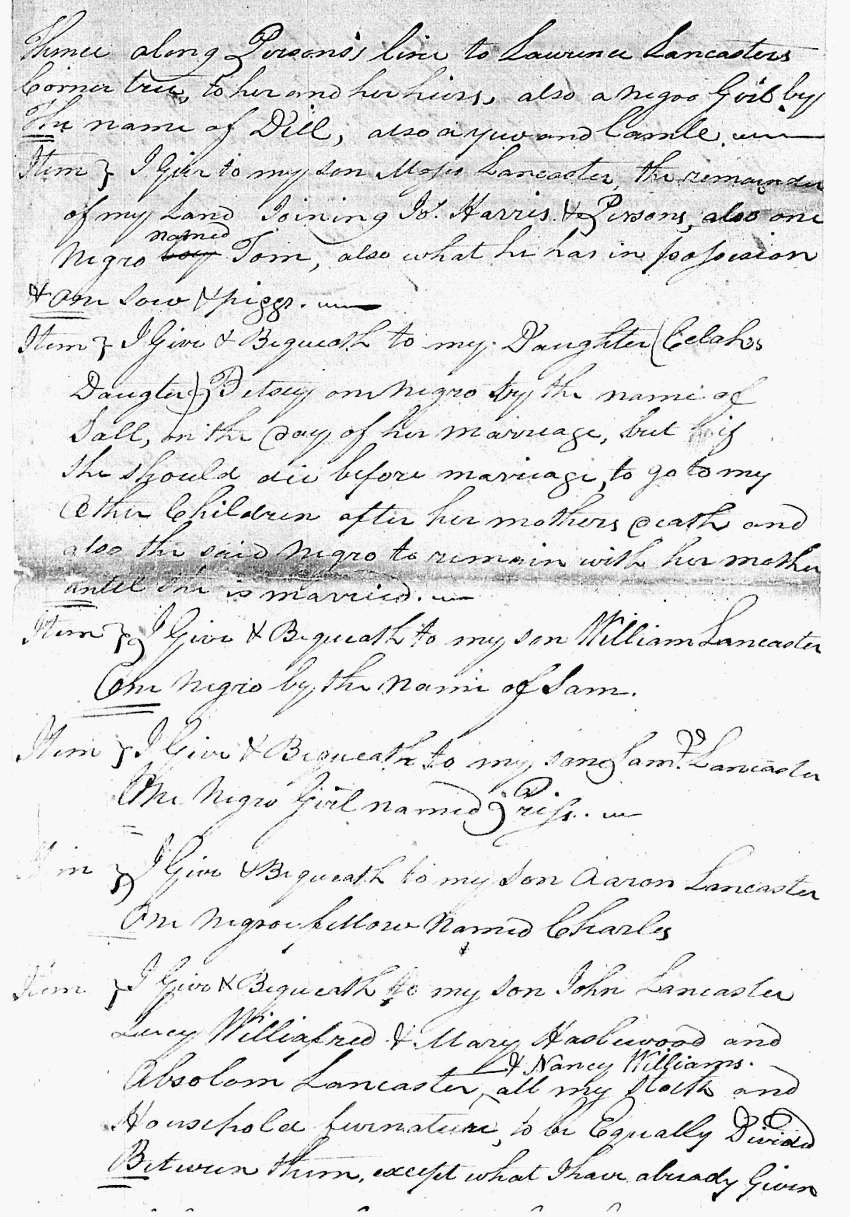 Thence along Persons's line to Lawrence Lancasters
Corner tree, to her and her heirs, also a negro Girl by
The name of Dill, also a yew and Lamb.
Item } I Give to my son Moses Lancaster, the remainder
of my Land Joining Jo. Harris & Persons, also one
Negro named Tom, also what he has in possession
& One sow & piggs.
Item } I Give & Bequeath to my Daughter (Celah's
Daugter) Betsey one negro by the name of
Sall, on the day of her marriage, but if
she should die before marriage, to go to my
Other Children after her mothers death and
also the said negro to remain with her mother
untill she is married.
Item } I Give & Bequeath to my son William Lancaster
One negro by the name of Sam.
Item } I Give & Bequeath to my son Saml. Lancaster
One Negro Girl named Priss.
Item } I Give & Bequeath to my son Aaron Lancaster
One Negroe fellow Named Charles
Item } I Give & Bequeath to my son John Lancaster
Lucy & Mary Haslewood and
& Nancy Williams.
Absolom Lancaster, all my stock and
Household furnature, to be Equally Divided
Between them, except what I have already Given